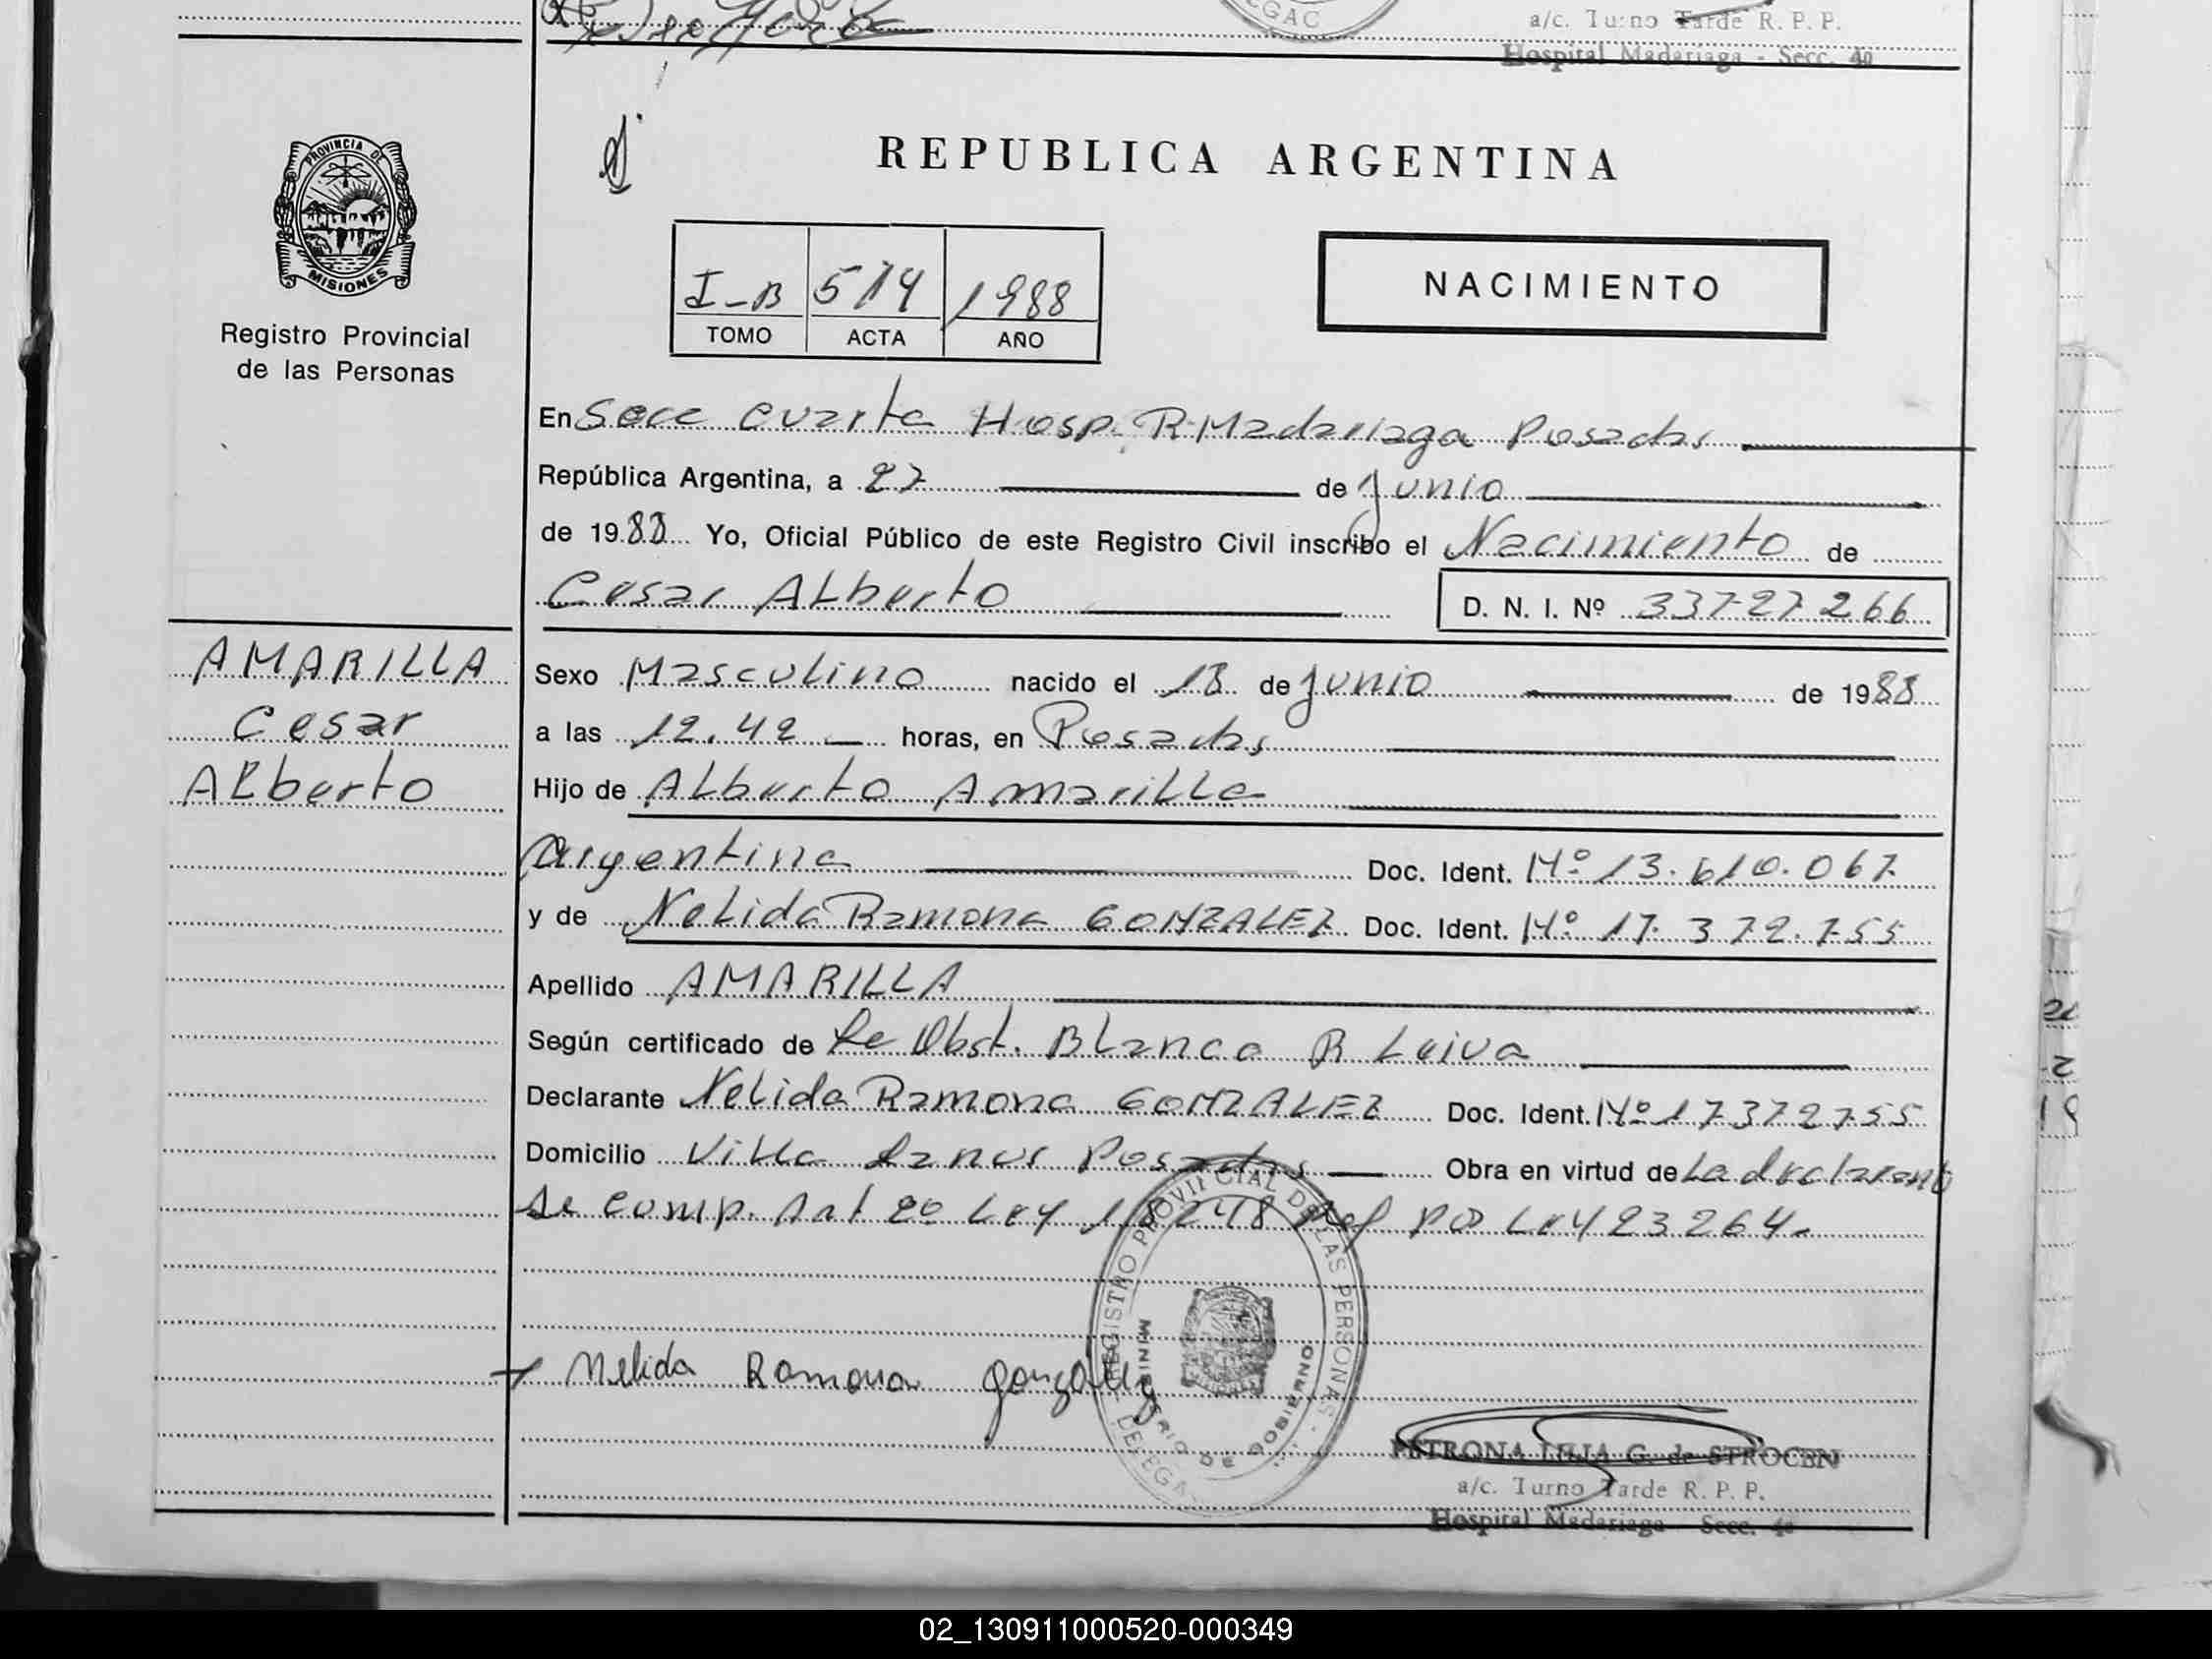 EGAC
a/c. Turno Tarde R. P. P.
Hospital Madariaga - Secc. 4a
PROVINCIA DE
MISIONES
Registro Provincial
de las Personas
REPUBLICA ARGENTINA
I-B 514 1988
TOMO ACTA AÑO
NACIMIENTO
En Secc cuarta Hosp. R. Madariaga Posadas
República Argentina, a 27 de Junio
de 1988 Yo, Oficial Público de este Registro Civil inscribo el Nacimiento de
Cesar Alberto D. N. I. Nº 33727266
AMARILLA
Cesar
Alberto
Sexo Masculino nacido el 18 de Junio de 1988
a las 12.42 horas, en Posadas
Hijo de Alberto Amarilla
Argentina Doc. Ident. Nº 13.610.067
y de Nelida Ramona GONZALEZ Doc. Ident. Nº 17.372.755
Apellido AMARILLA
Según certificado de La Obst. Blanca R Leiva
Declarante Nelida Ramona GONZALEZ Doc. Ident. Nº 17372755
Domicilio Villa Lanus Posadas Obra en virtud de La declarante
Se comp. Art 2o Ley 18248 Ref po Ley 23264.
REGISTRO PROVINCIAL DE LAS PERSONAS - DELEGA
MINISTERIO DE GOBIERNO
Nelida Ramona gonzalez
PETRONA LILIA G. de STROCEN
a/c. Turno Tarde R. P. P.
Hospital Madariaga Secc. 4a
02_130911000520-000349